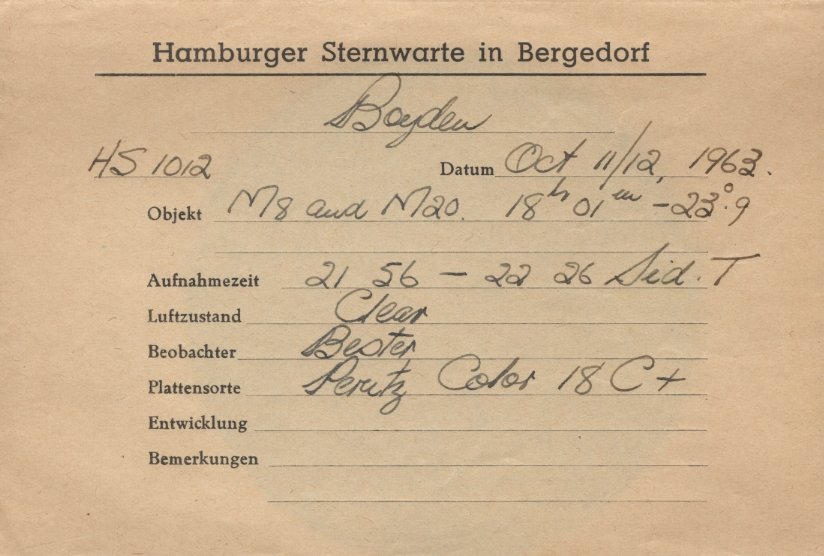 Hamburger Sternwarte in Bergedorf
Boyden
HS 1012 Datum Oct 11/12, 1963.
Objekt M8 and M20. 18ʰ 01ᵐ -23°.9
Aufnahmezeit 21 56 – 22 26 Sid. T
Luftzustand Clear
Beobachter Bester
Plattensorte Perutz Color 18 C+
Entwicklung
Bemerkungen